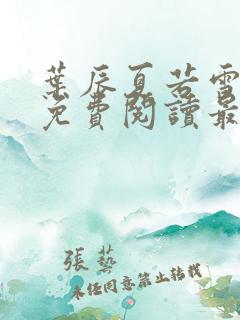 葉辰夏若雪
免費閱讀最
張藝
未經同意禁止轉載